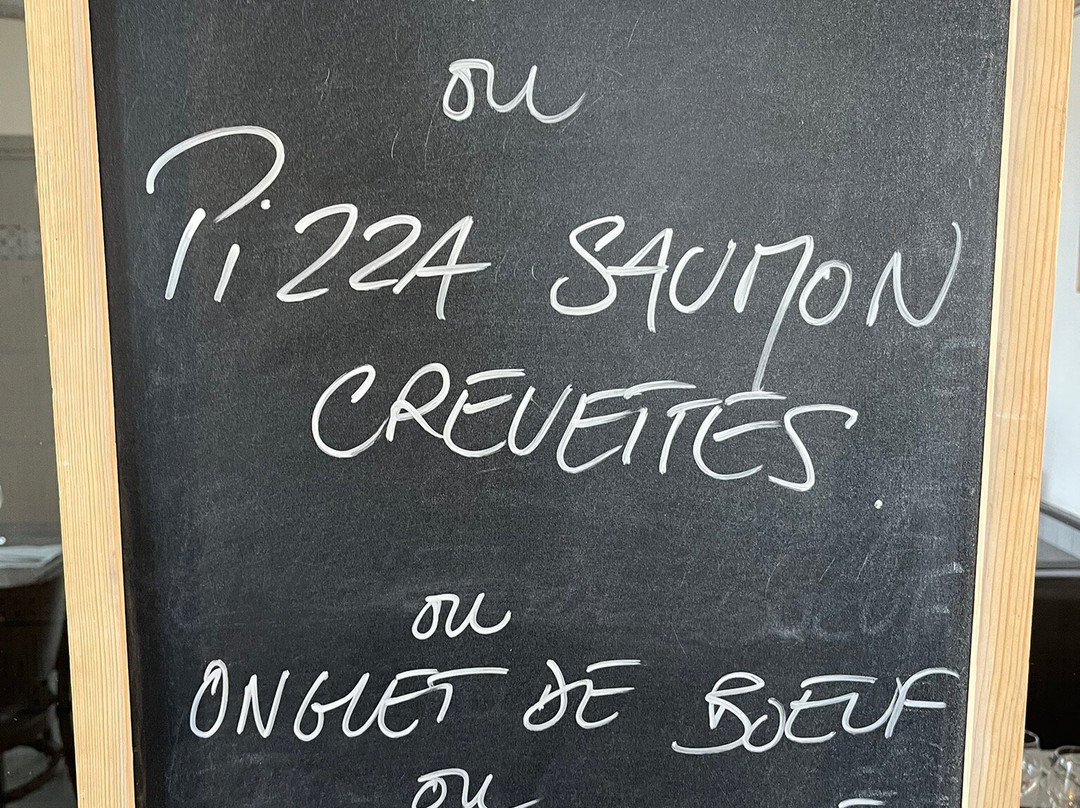 ou
PiZZA SAUMON
CREVETTES.
ou
ONGLET DE BOEUF
ou